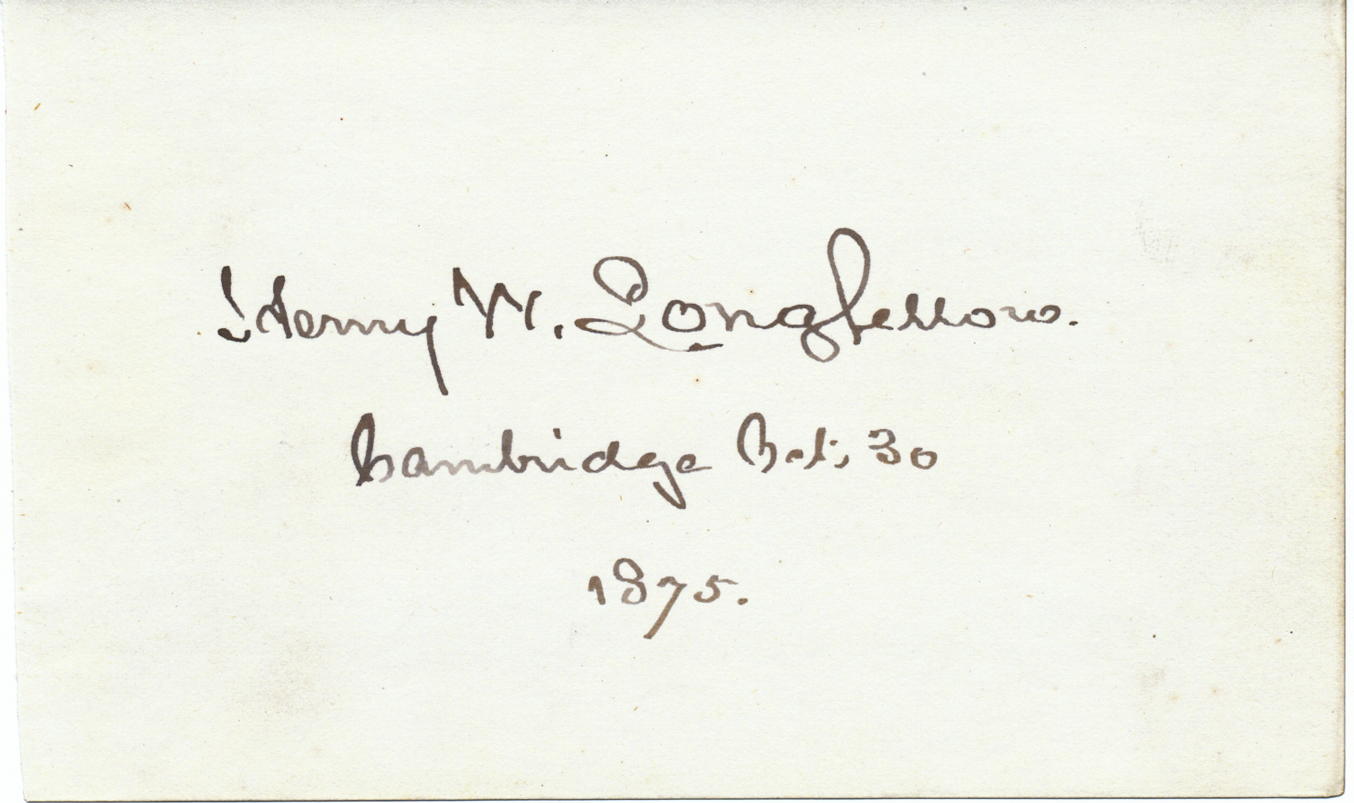 Henry W. Longfellow.
Cambridge Oct. 30
1875.